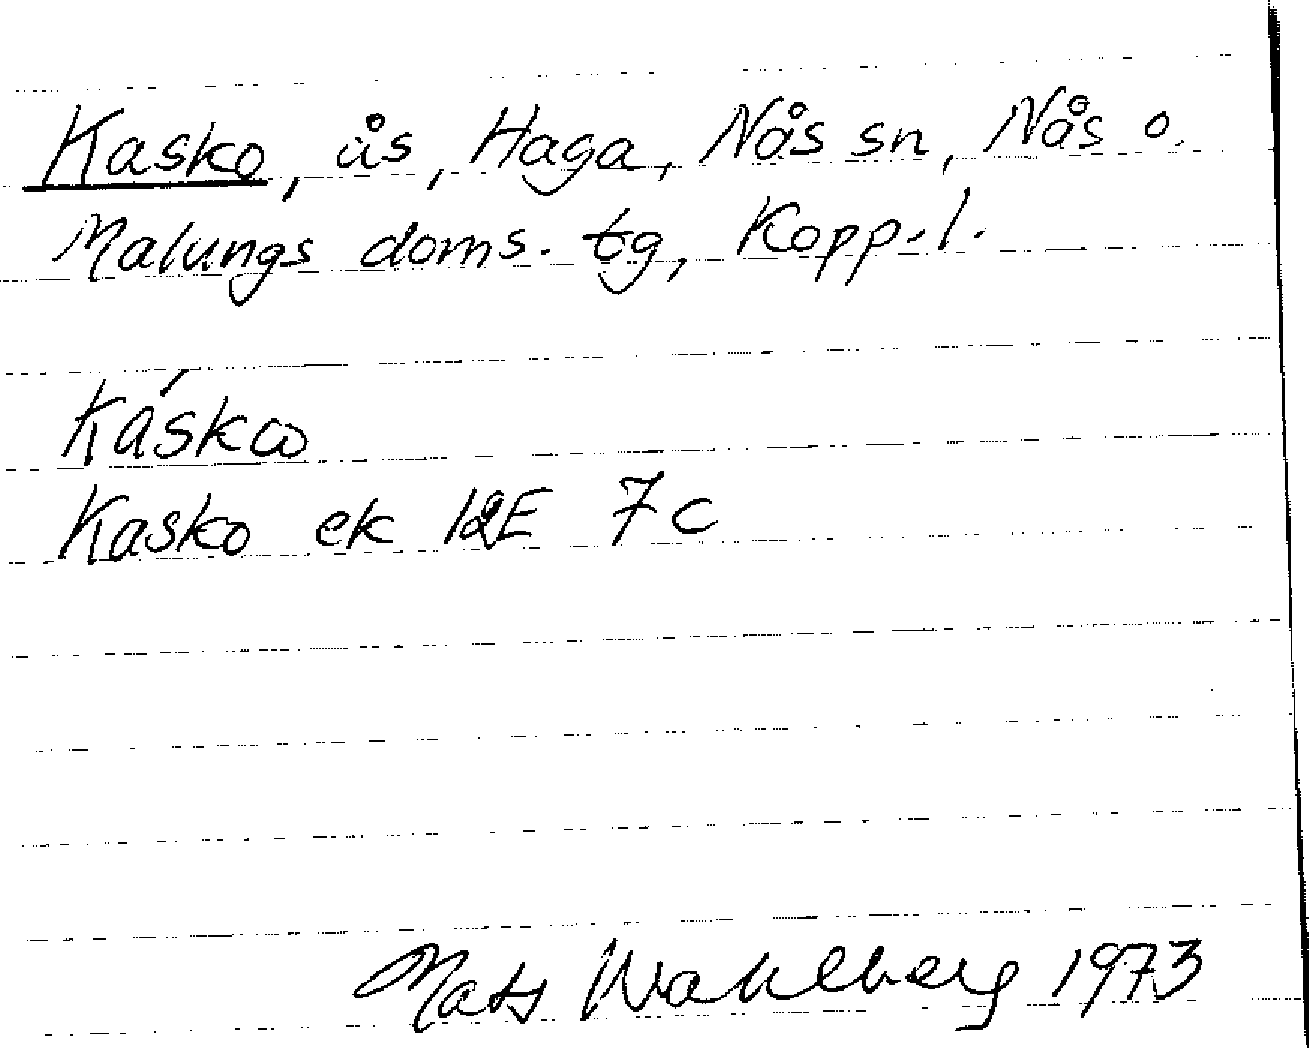 Kasko, ås, Haga, Nås sn, Nås o.
Malungs doms. tg, Kopp.l.
Káskω
Kasko ek 12E 7c
Mats Wahlberg 1973